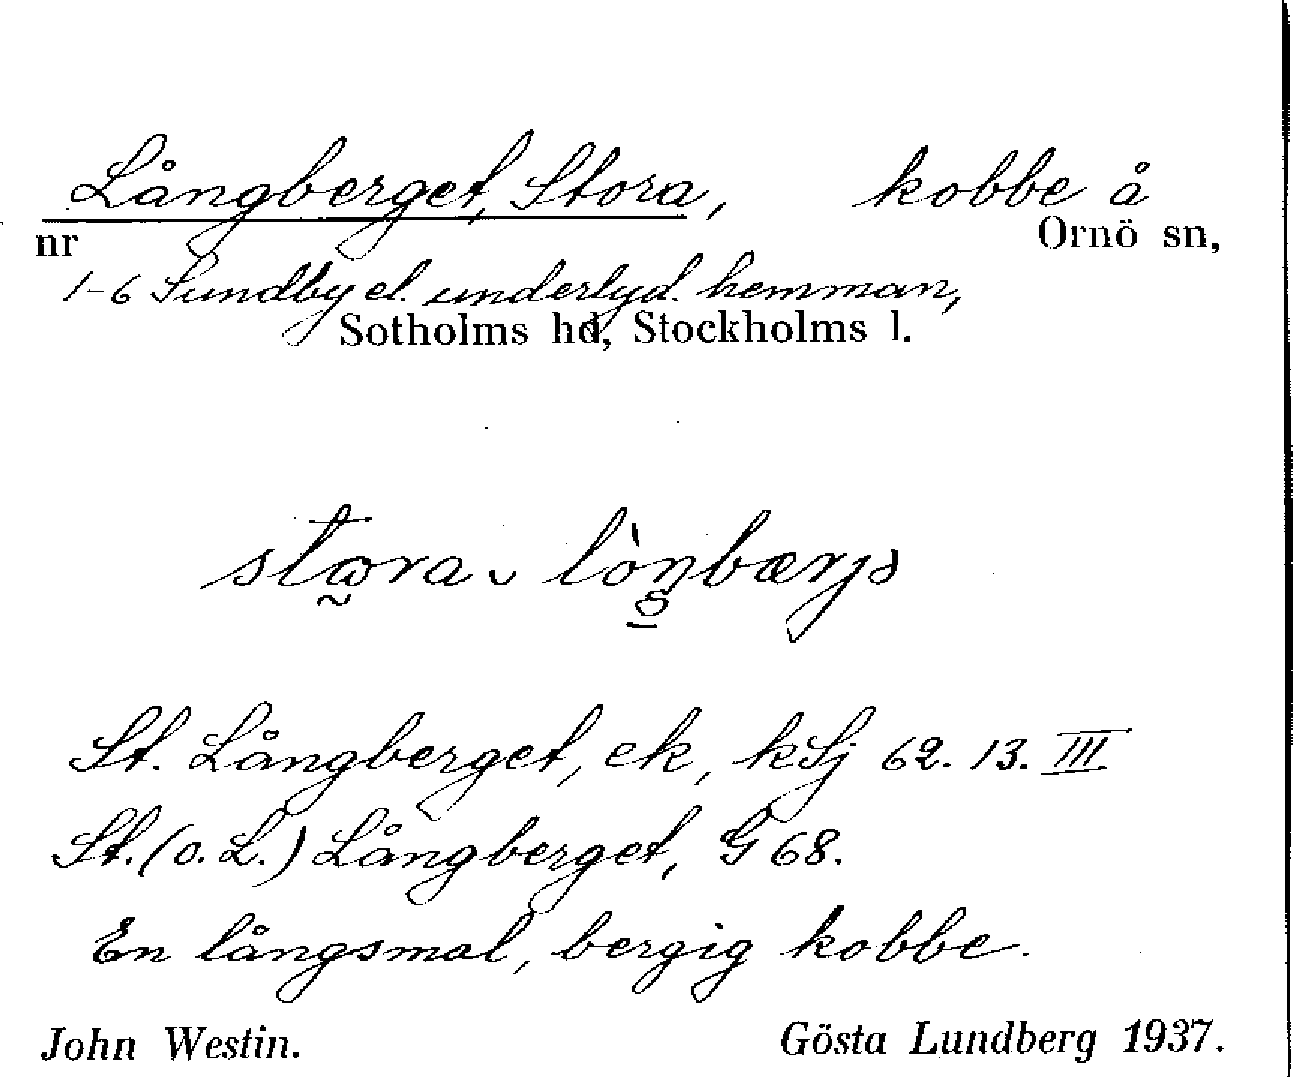 Långberget, Stora, kobbe å
nr Ornö sn,
1-6 Sundby el. underlyd. hemman,
Sotholms hd, Stockholms l.
St. Långberget, ek, kSj 62. 13. III
St. (o. L.) Långberget, G 68.
En långsmal, bergig kobbe.
John Westin. Gösta Lundberg 1937.